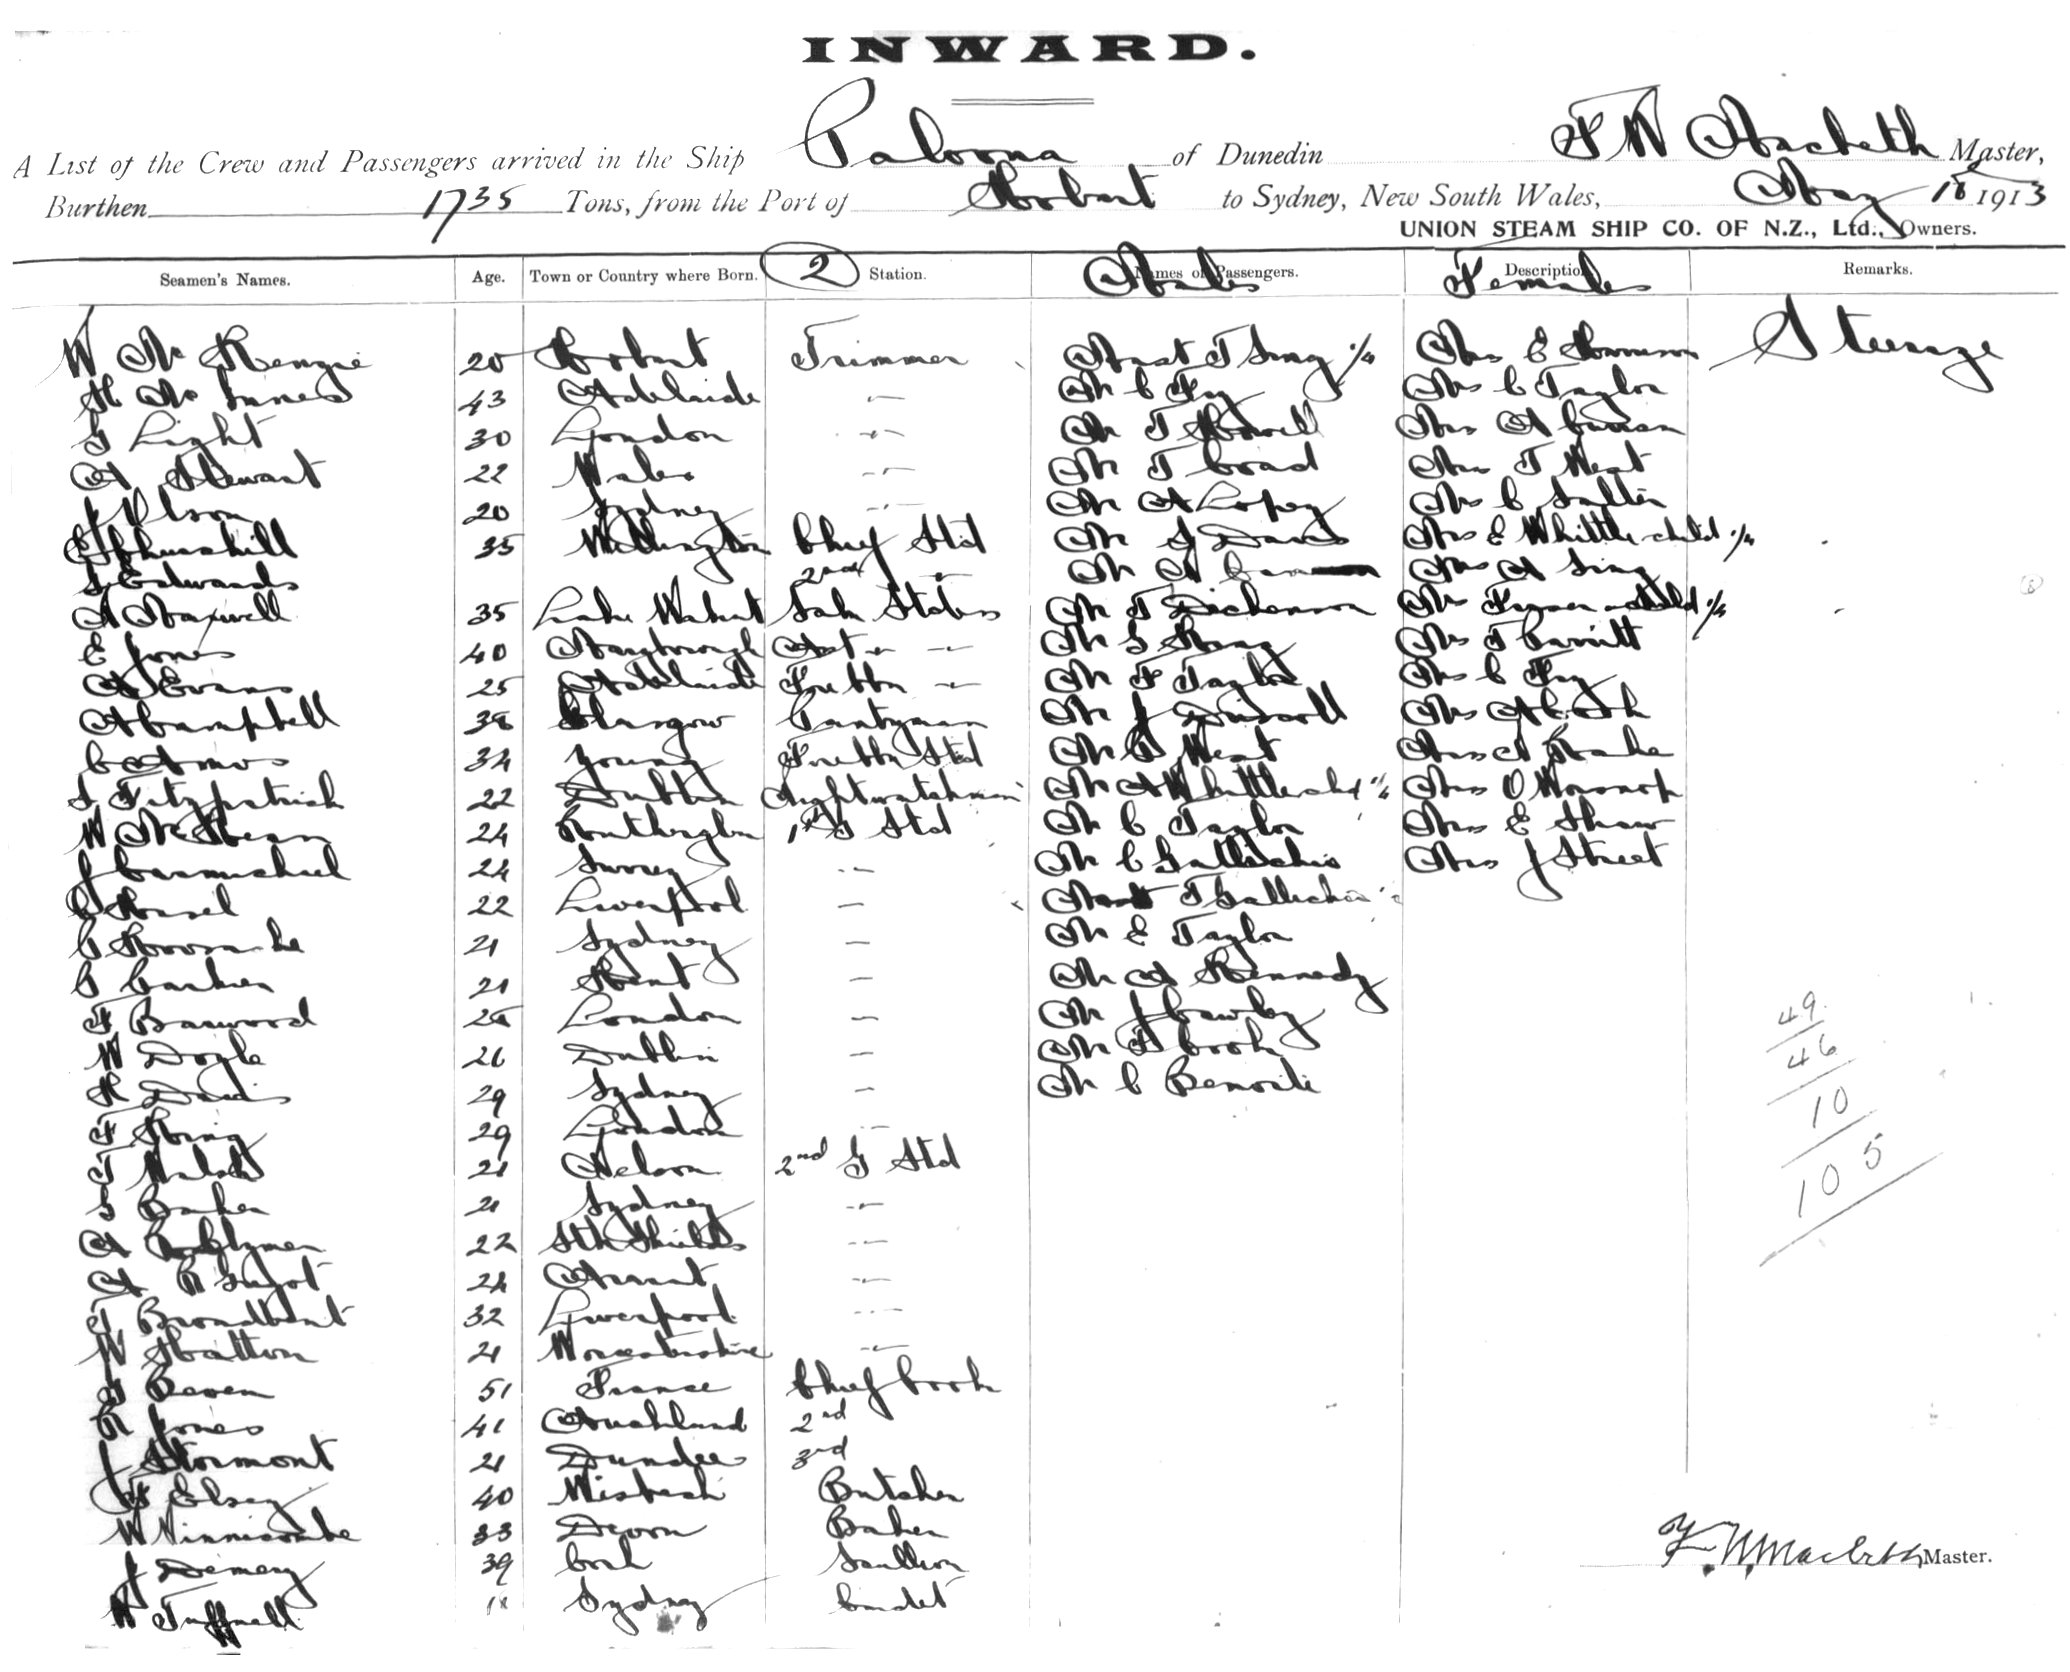 INWARD.
A List of the Crew and Passengers arrived in the Ship Paloona of Dunedin F W Macbeth Master,
Burthen 1735 Tons, from the Port of Hobart to Sydney, New South Wales, May 18 1913
UNION STEAM SHIP CO. OF N.Z., Ltd., Owners.
Seamen's Names. Age. Town or Country where Born. 2 Station. Names of Passengers. Males Description Females Remarks.
W McKenzie 20 Hobart Trimmer Mast T Sing 1/4 Mrs E Steerage
H McInnes 43 Adelaide Mr C Fay Mrs C Taylor
G Light 30 London Mr T Howell Mrs A Curran
A Stewart 22 Wales Mr T Coad Mrs T West
J Olson 20 Sydney Mr A Lopez Mrs C Salter
E Churchill 35 Wellington Chief Std Mr S Davis Mrs E Whittle child 1/4
S Edwards 2nd Mr A Mrs A Sing
A Maxwell 35 Lake Wakat Mr T Dickenson Mrs child 1/4
E Jones 40 Maryborough Ast Mr S Mrs T
A Evans 25 Adelaide Mr F Taylor Mrs C Fay
A Campbell 38 Glasgow Pantryman Mr J Driscoll Mrs A
C Amos 34 Young Std Mr T West
S Fitzpatrick 22 Dublin Nightwatchman Mr A Whittle child 1/4 O Worsnop
W McKean 24 1st G Std Mr C Taylor E Shaw
J Carmichael 24 Surrey Mr C Gallichio J Street
22 Liverpool Mast T Gallichio
C 21 Sydney Mr E Taylor
C 21 Kent Mr A Kennedy
F Barwood 25 London Mr J Cawley
W Doyle 26 Dublin Mr T Cook
H Davis 29 Sydney Mr C
F King 29 London
T Walsh 21 Nelson 2nd G Std
S Baker 21 Sydney
A 22 Sth Shields
A 24
T Broadbent 32 Liverpool
W Hatton 21 Worcestershire
51 France Chief Cook
R Jones 41 Auckland 2nd
J Stormont 21 Dundee 3rd
F Elsey 40 Wisbech Butcher
W Vinnicombe 33 Devon Baker
J Demery 39 Cork Scullion
H Tuffnell 18 Sydney Cadet
49
46
10
105
F W Macbeth Master.